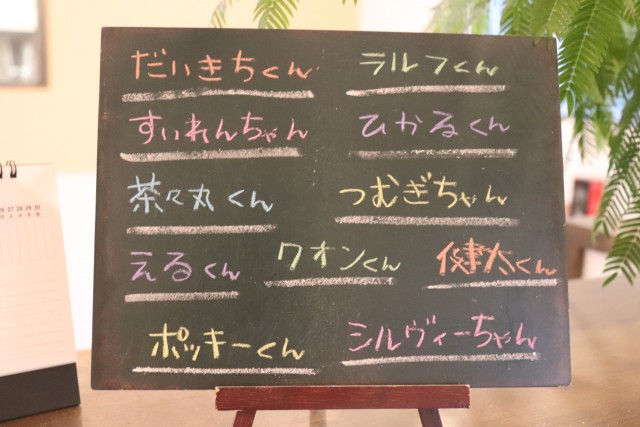 だいきちくん ラルフくん
すいれんちゃん ひかるくん
茶々丸くん つむぎちゃん
えるくん クオンくん 健太くん
ポッキーくん シルヴィーちゃん